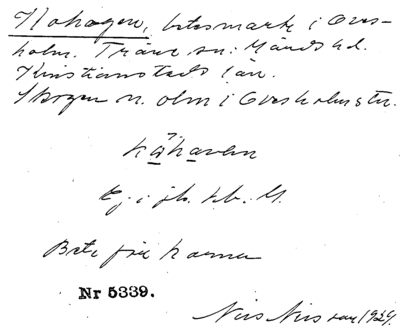 Kohagen, betesmark i Oves-
holm. Träne sn. Gärds hd.
Kristianstads län.
Skogen n. om i Ovesholms tr.
kǫhavен
Ej i jb. hb. G.
Bete för korna
Nr 5339.
Nils Nilsson 1929.